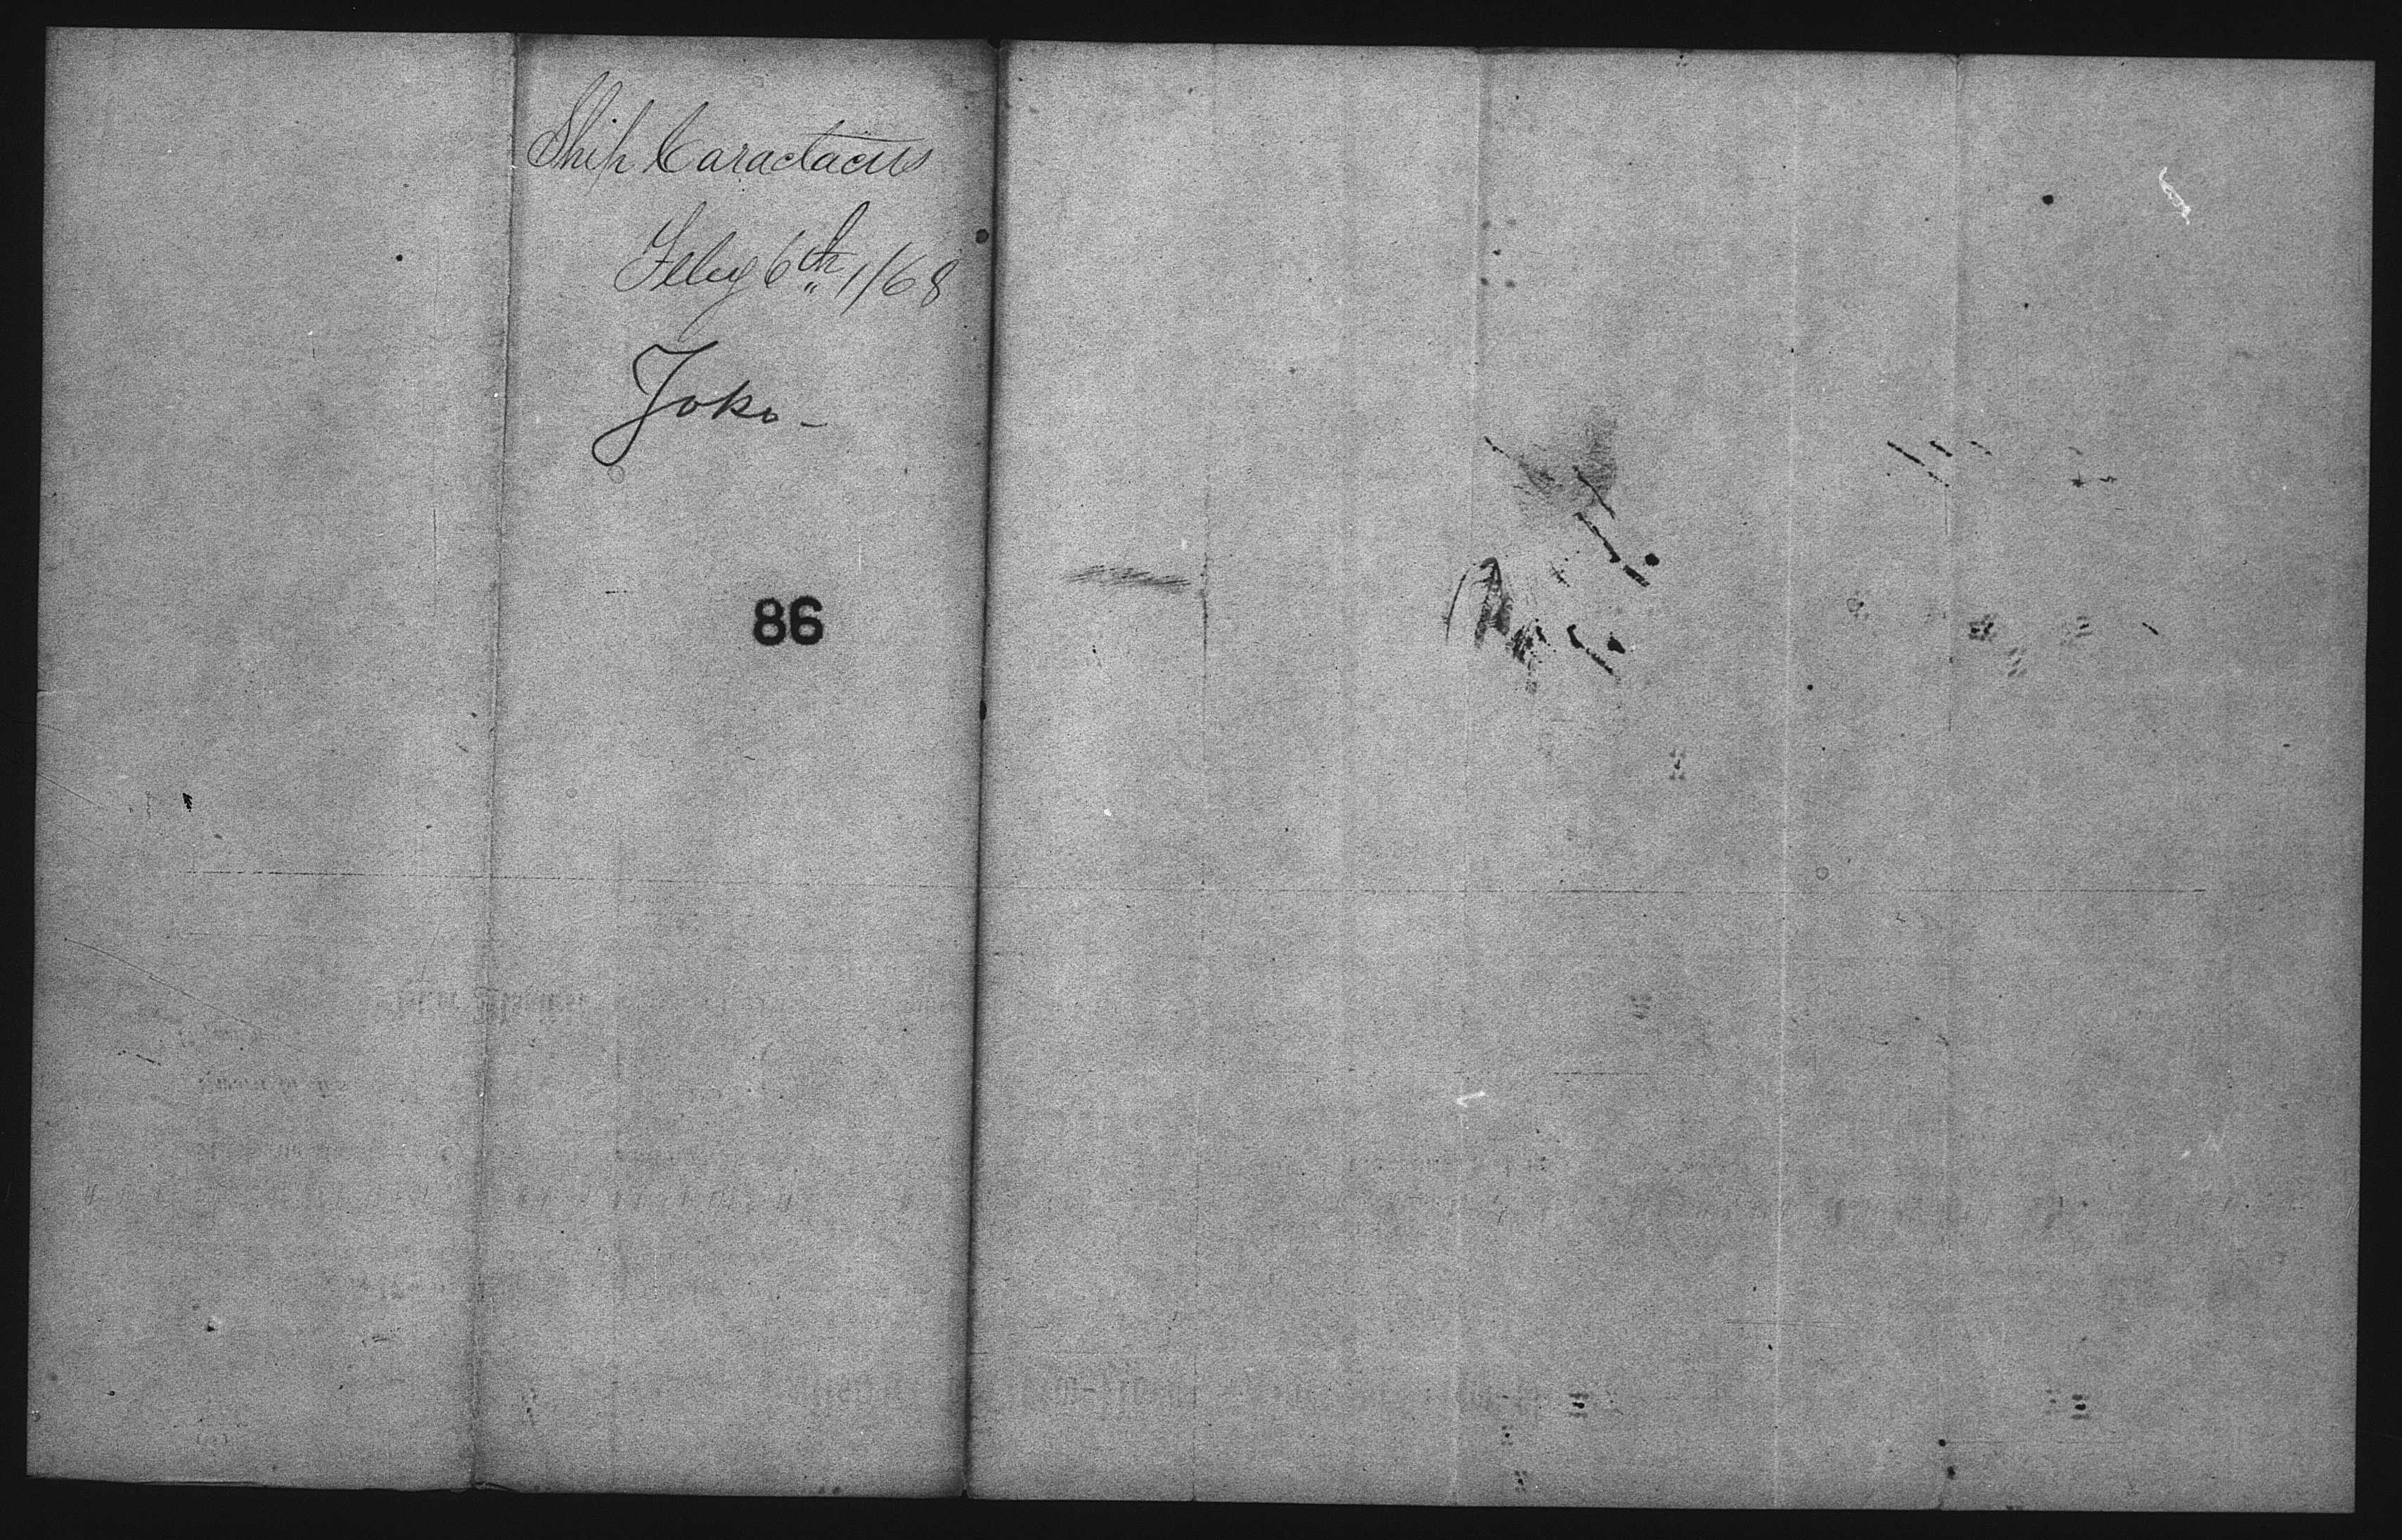 Ship Caractacus
Feby 6th 1/68
Joko -
86